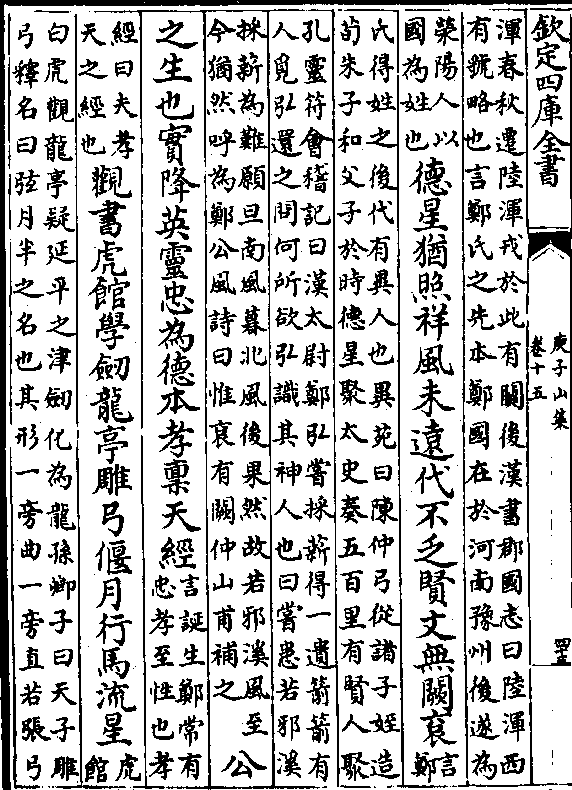 欽定四庫全書
庚子山集
卷十五
渾春秋遷陸渾戎於此有闗後漢書郡國志曰陸渾西
有虢略也言鄭氏之先本鄭國在於河南豫州後遂為
滎陽人以
國為姓也
德星猶照祥風未遠代不乏賢文無闕衮
言
鄭
氏得姓之後代有異人也異苑曰陳仲弓從諸子姪造
荀朱子和父子於時德星聚太史奏五百里有賢人聚
孔靈符會稽記曰漢太尉鄭弘嘗採薪得一遺箭箭有
人覓弘還之問何所欲弘識其神人也曰嘗患若邪溪
採薪為難願旦南風暮北風後果然故若邪溪風至
今猶然呼為鄭公風詩曰惟衮有闕仲山甫補之
公
之生也實降英靈忠為德本孝稟天經
言誕生鄭常有
忠孝至性也孝
經曰夫孝
天之經也
觀書虎館學劒龍亭雕弓偃月行馬流星
虎
館
白虎觀龍亭疑延平之津劒化為龍孫卿子曰天子雕
弓釋名曰弦月半之名也其形一旁曲一旁直若張弓